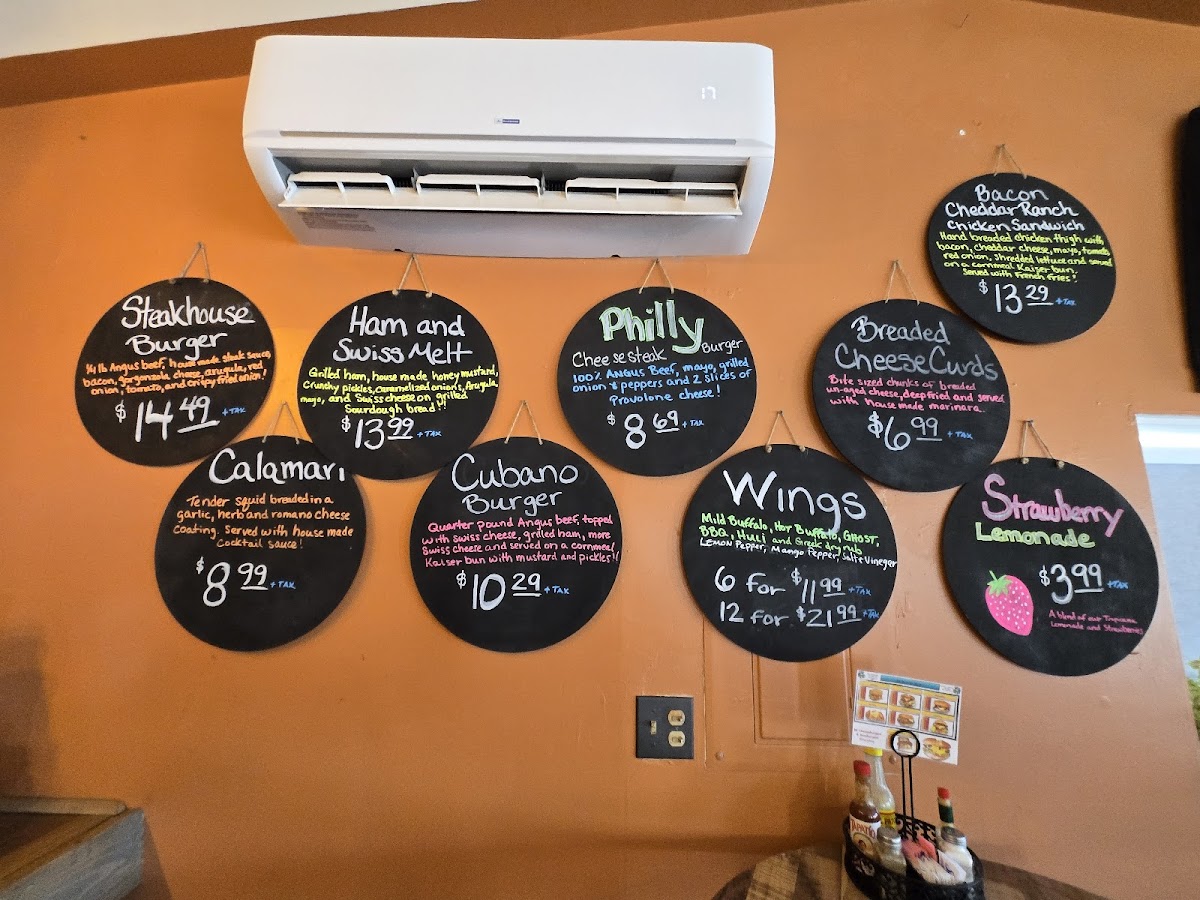 17
Steakhouse
Burger
1/4 lb Angus beef, house made steak sauce,
bacon, gorgonzola cheese, arugula, red
onion, tomato, and crispy fried onion!
$14.49 + TAX
Ham and
Swiss Melt
Grilled ham, house made honey mustard,
Crunchy pickles, caramelized onions, Arugula,
mayo, and Swiss cheese on grilled
Sourdough bread!!
$13.99 + TAX
Philly
Cheesesteak Burger
100% Angus Beef, mayo, grilled
onion & peppers and 2 slices of
Provolone cheese!
$8.69 + TAX
Breaded
Cheese Curds
Bite sized chunks of breaded
un-aged cheese, deep fried and served
with house made marinara.
$6.99 + TAX
Bacon
Cheddar Ranch
Chicken Sandwich
Hand breaded chicken thigh with
bacon, cheddar cheese, mayo, tomato
red onion, shredded lettuce and served
on a cornmeal Kaiser bun.
Served with French Fries!
$13.29 + TAX
Calamari
Tender squid breaded in a
garlic, herb and romano cheese
coating. Served with house made
cocktail sauce!
$8.99 + TAX
Cubano
Burger
Quarter pound Angus beef, topped
with Swiss cheese, grilled ham, more
Swiss cheese and served on a cornmeal
Kaiser bun with mustard and pickles!!
$10.29 + TAX
Wings
Mild Buffalo, Hot Buffalo, GHOST,
BBQ, Huli and Greek dry rub
Lemon Pepper, Mango Pepper, Salt & Vinegar
6 for $11.99 + TAX
12 for $21.99 + TAX
Strawberry
Lemonade
$3.99 + TAX
A blend of our Tropicana
Lemonade and Strawberries
TAPATIO